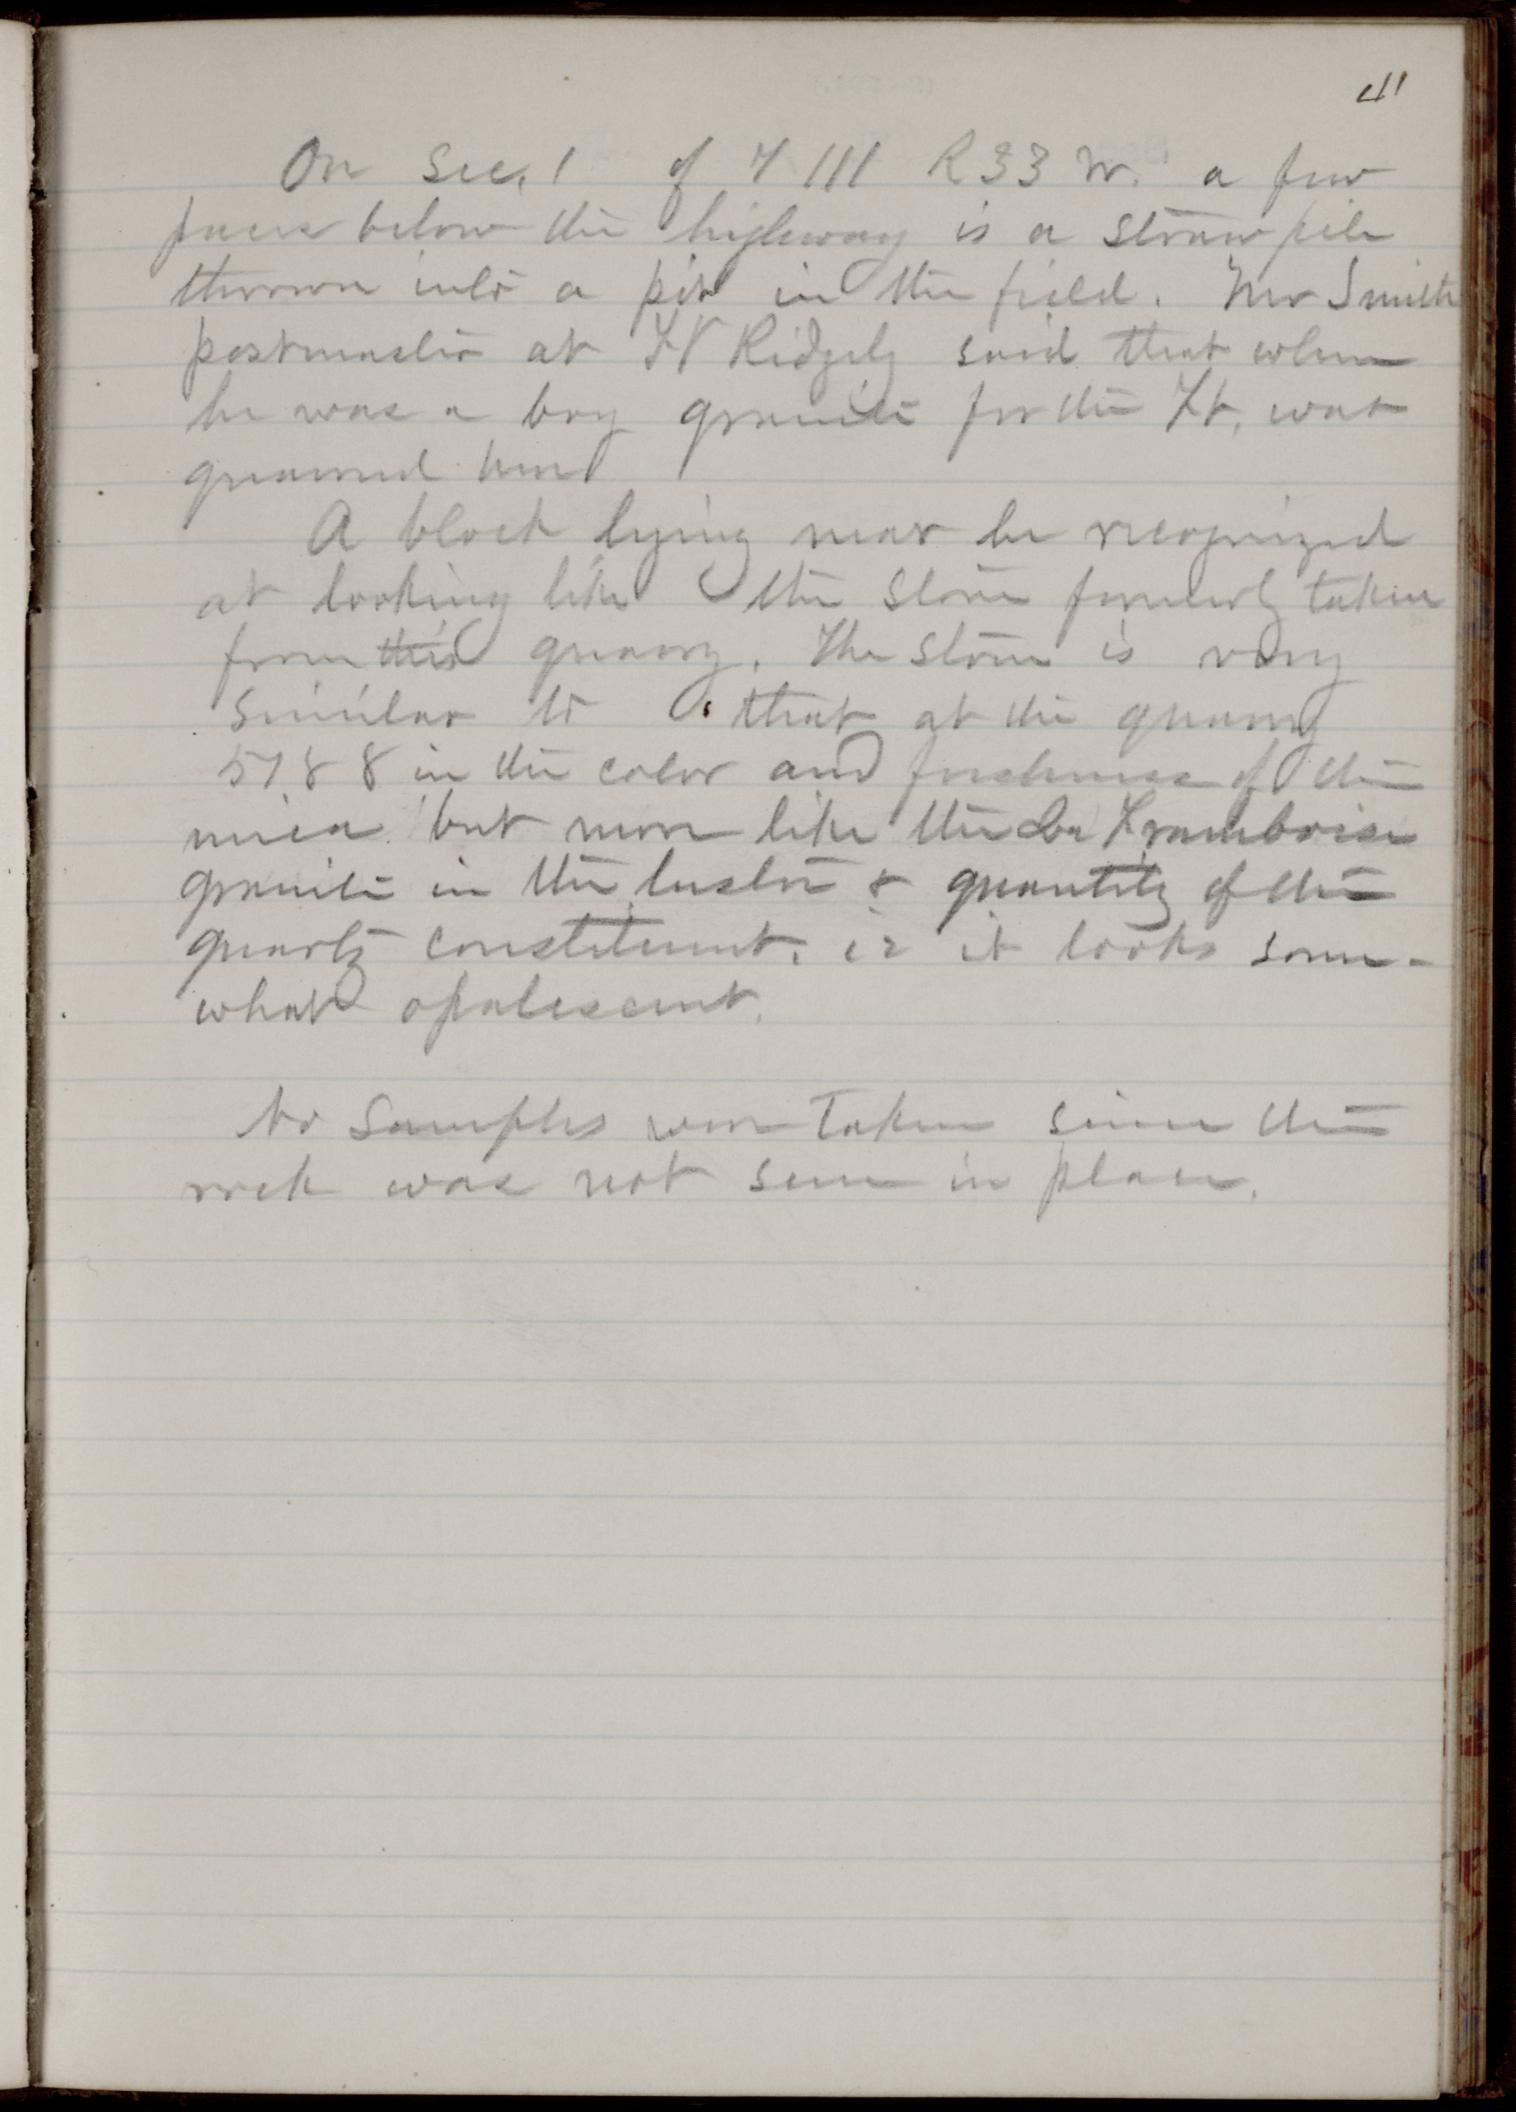 41
On Sec. 1 of T 111 R 33 W. a few
paces below the highway is a straw pile
thrown into a pit in the field. Mr Smith
postmaster at Ft Ridgely said that when
he was a boy granite for the Ft. was
quarried here
A block lying near he recognized
as looking like the stone formerly taken
from this quarry. The stone is very
similar to that at the quarry
5188 in the color and freshness of the
mica but more like the La Framboise
granite in the lustre & quantity of the
quartz constituent. ie it looks some-
what opalescent.
No samples were taken since the
rock was not seen in place.